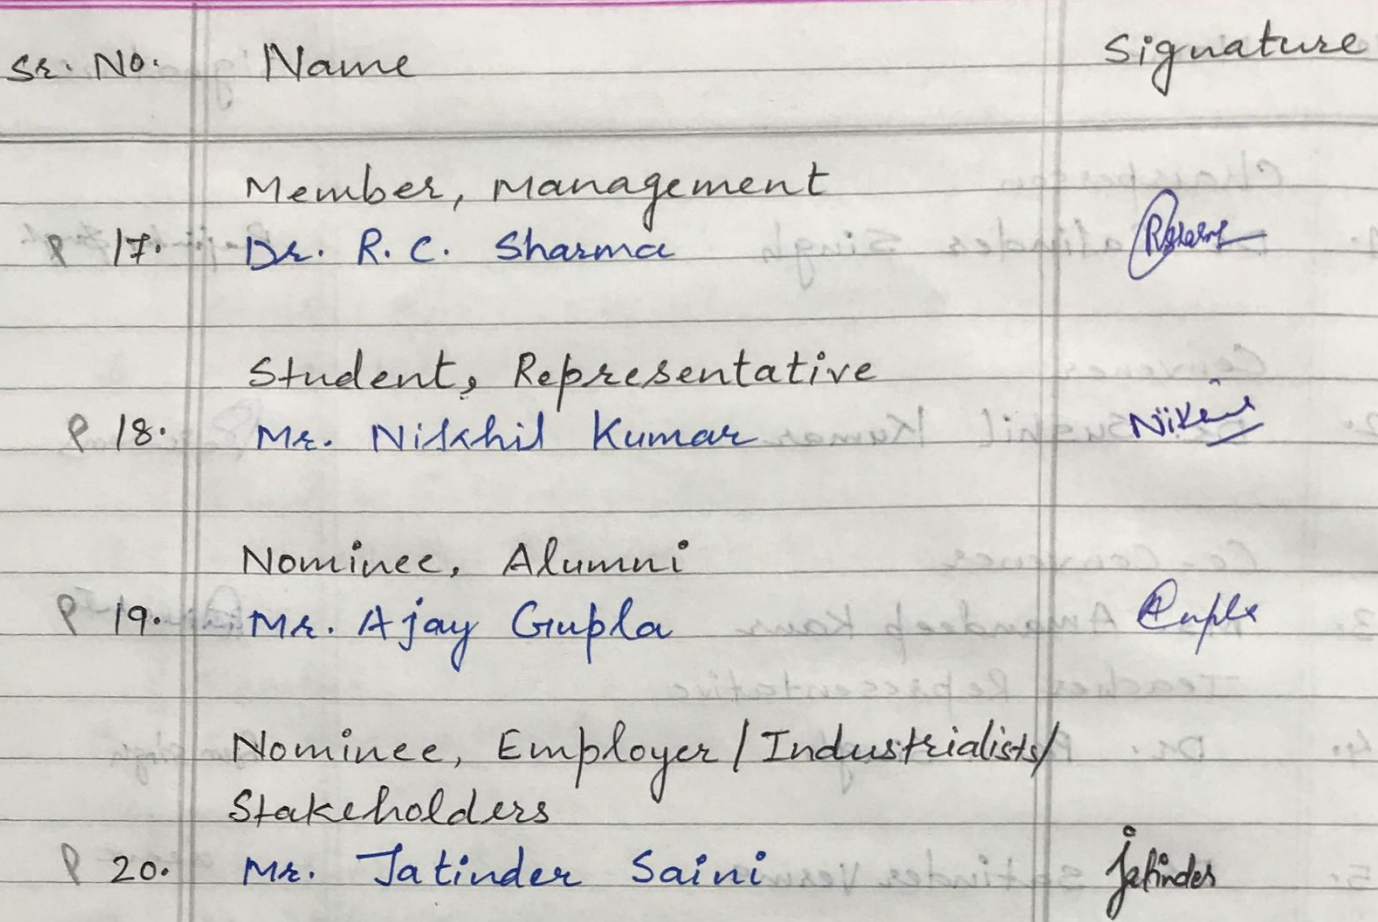 Sr. No. Name Signature
Member, Management
P 17. Dr. R. C. Sharma
Student, Representative
P 18. Mr. Nikhil Kumar
Nominee, Alumni
P 19. Mr. Ajay Gupta
Nominee, Employer / Industrialists/
Stakeholders
P 20. Mr. Jatinder Saini Jatinder